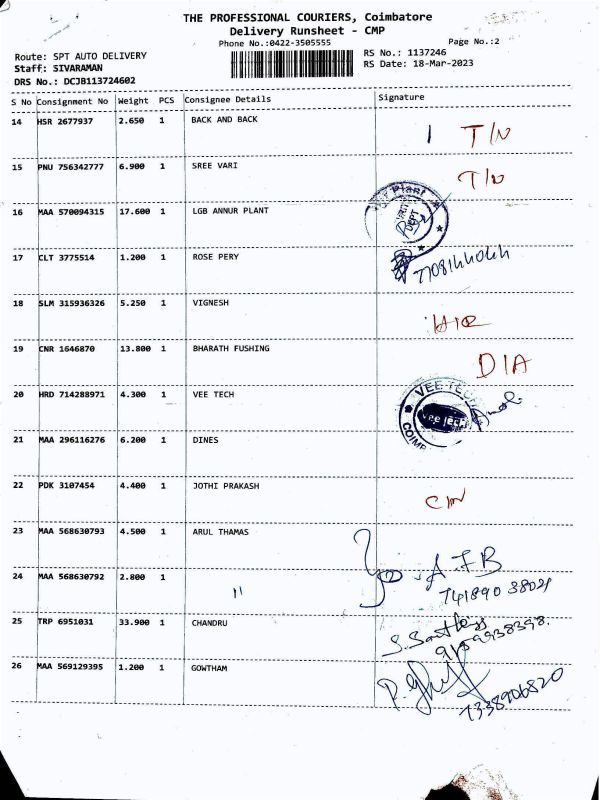 THE PROFESSIONAL COURIERS, Coimbatore
Delivery Runsheet - CMP
Phone No.:0422-3505555 Page No.:2
Route: SPT AUTO DELIVERY RS No.: 1137246
Staff: SIVARAMAN RS Date: 18-Mar-2023
DRS No.: DCJB113724602
S No Consignment No Weight PCS Consignee Details Signature
14 HSR 2677937 2.650 1 BACK AND BACK T/N
15 PNU 756342777 6.900 1 SREE VARI T/N
16 MAA 570094315 17.600 1 LGB ANNUR PLANT Plant DEPT
17 CLT 3775514 1.200 1 ROSE PERY
18 SLM 315936326 5.250 1 VIGNESH
19 CNR 1646870 13.800 1 BHARATH FUSHING D/A
20 HRD 714288971 4.300 1 VEE TECH VEE TECH
21 MAA 296116276 6.200 1 DINES
22 PDK 3107454 4.400 1 JOTHI PRAKASH
23 MAA 568630793 4.500 1 ARUL THAMAS
24 MAA 568630792 2.800 1 "
25 TRP 6951031 33.900 1 CHANDRU
26 MAA 569129395 1.200 1 GOWTHAM
7338906820